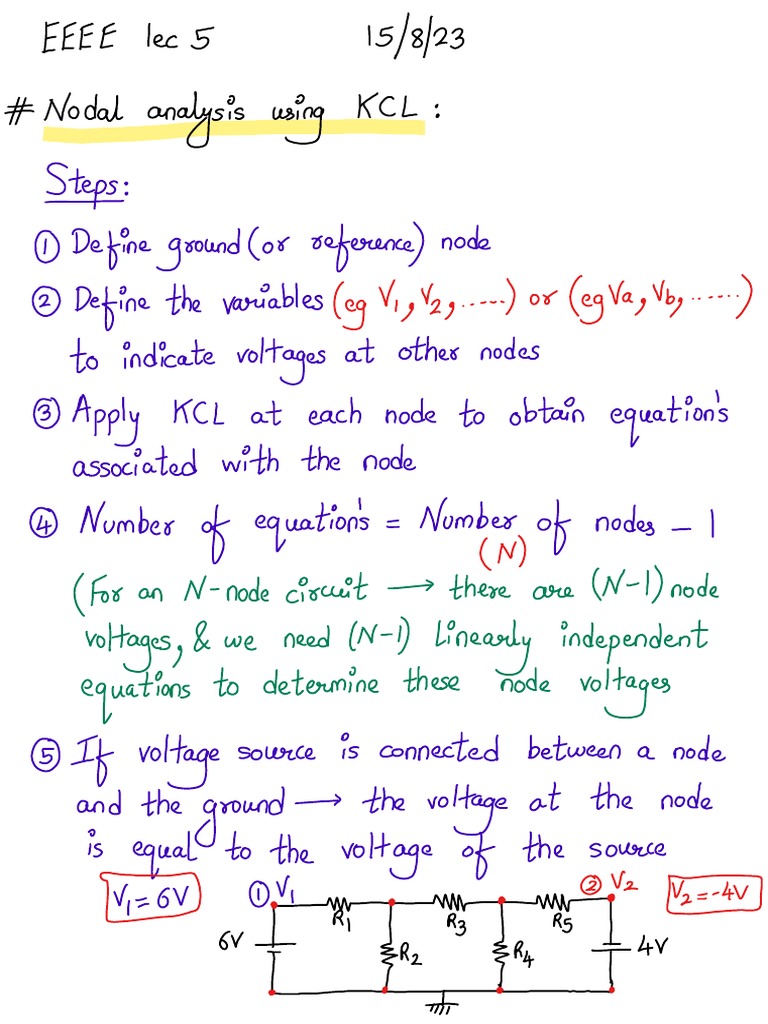 EEEE lec 5 15/8/23
# Nodal analysis using KCL :
Steps:
① Define ground (or reference) node
② Define the variables (eg V₁, V₂, ......) or (eg Va, Vb, ......)
to indicate voltages at other nodes
③ Apply KCL at each node to obtain equation's
associated with the node
④ Number of equation's = Number of nodes - 1
(N)
(For an N-node circuit → there are (N-1) node
voltages, & we need (N-1) Linearly independent
equations to determine these node voltages
⑤ If voltage source is connected between a node
and the ground → the voltage at the node
is equal to the voltage of the source
V₁ = 6V ① V₁ ② V₂ V₂ = -4V
R₁ R₃ R₅
6V R₂ R₄ 4V